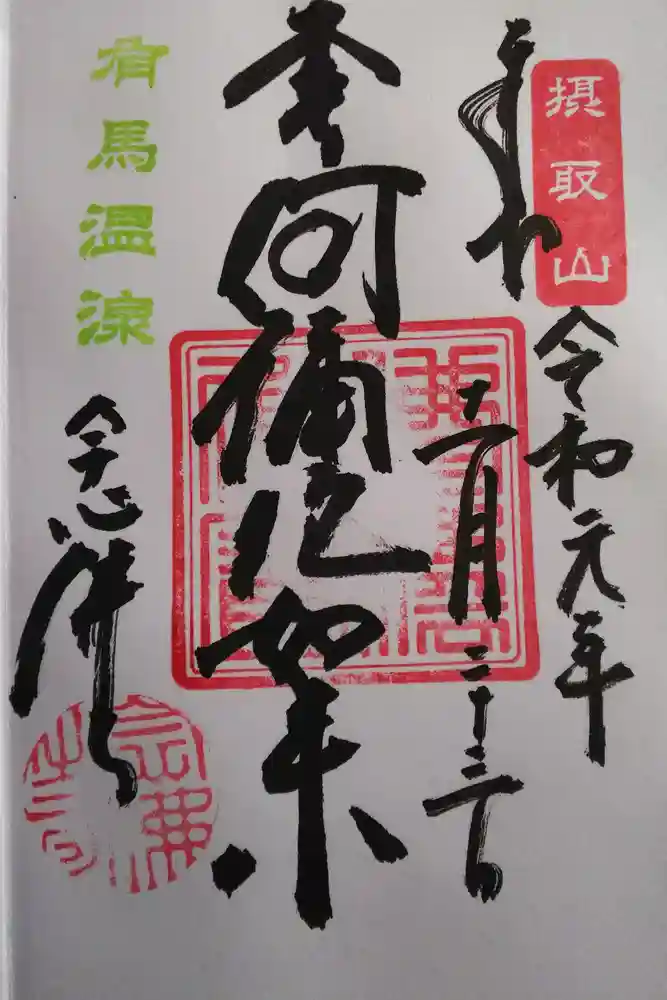 摂取山
奉拝
令和元年
十二月二十三日
阿彌陀如来
有馬温泉
念佛寺